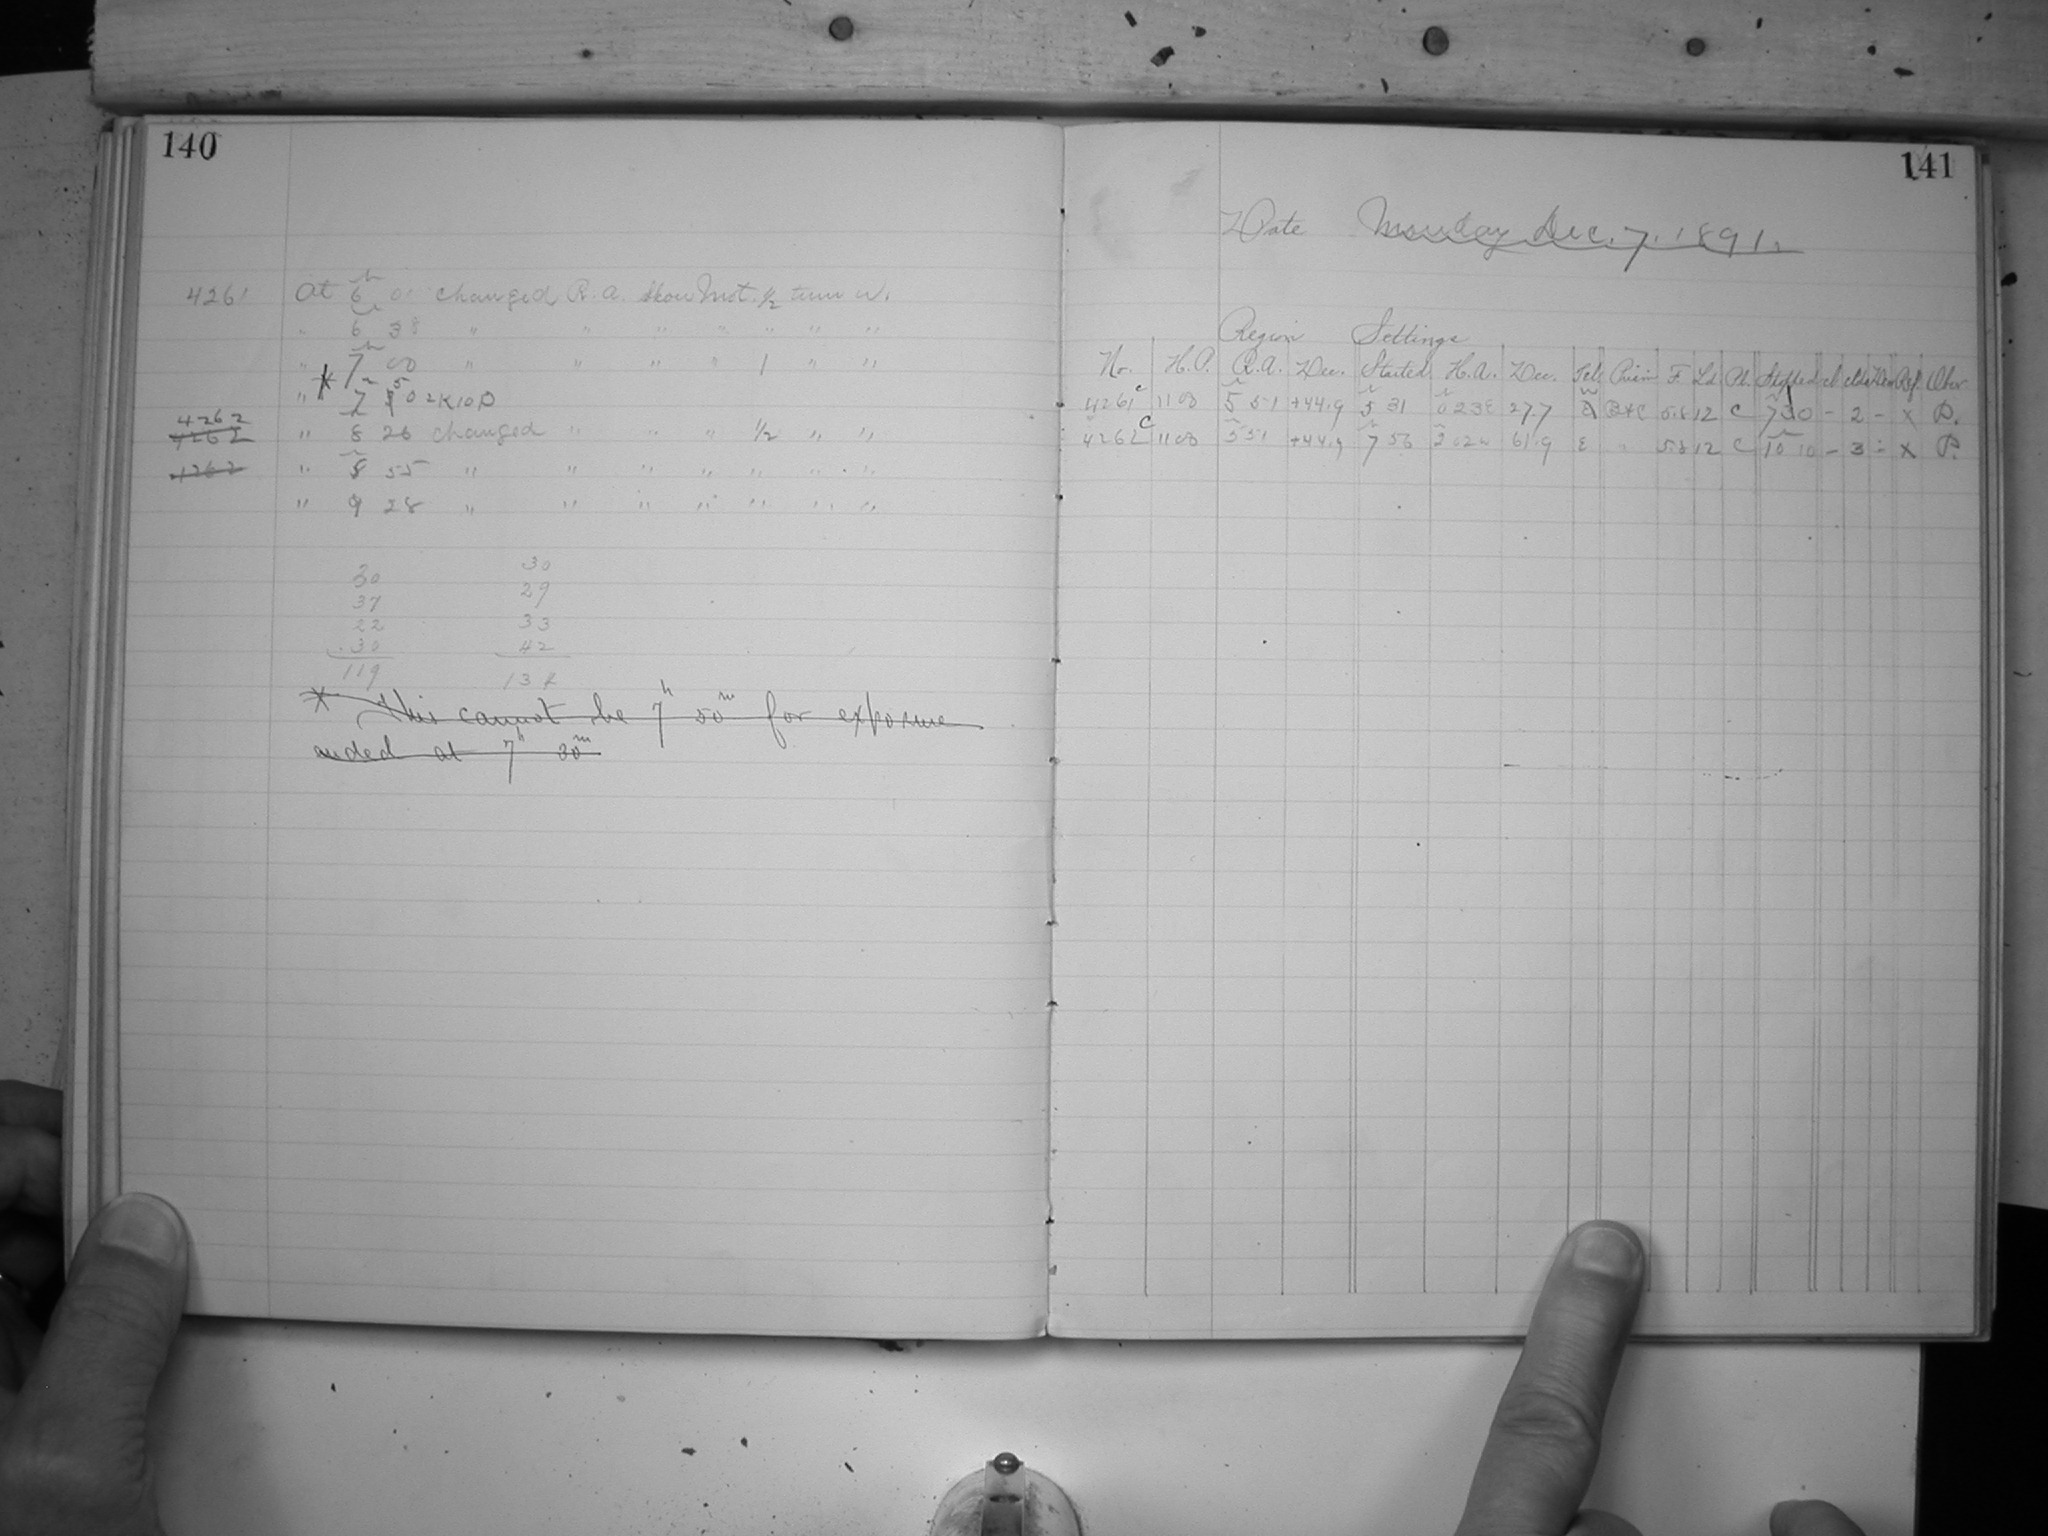 140
4261 At 6h 01 changed R.A. Slow Mot. 1/2 turn W.
" 6 38 " " " " " " "
" 7h 00 " " " " 1 " "
* " 7 50
4262 4262 " 8 26 changed " " " 1/2 " "
4262 " 8 55 " " " " " " "
" 9 28 " " " " " " "
30 30
37 29
22 33
30 42
119 134
* This cannot be 7h 50m for exposure
ended at 7h 30m
141
Date Monday Dec. 7. 1891.
Region Settings
No. H.P. R.A. Dec. Started H.A. Dec. Tel. Prism F. Ld Pl. Stopped cl. clds Dew Ref. Obsr
4261 C 1108 5 51 +44.9 5 31 0 23 E 27.7 5.8 12 C 7 30 - 2 - X P.
4262 C 1108 5 51 +44.9 7 56 2 02 W 61.9 E " 5.8 12 C 10 10 - 3 - X P.